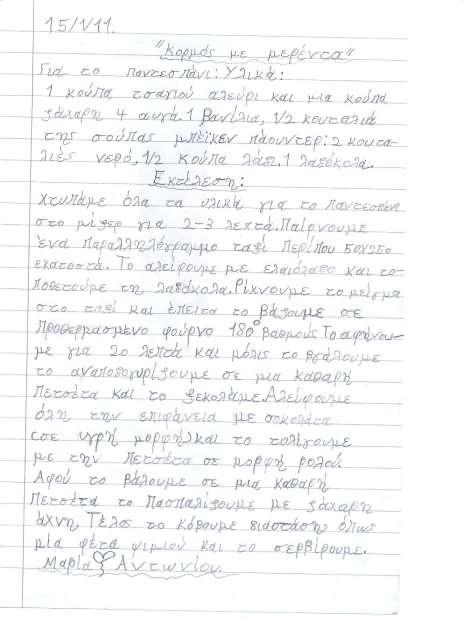 15/1/11.
"Κορμός με μερέντα"
Για το παντεσπάνι: Υλικά:
1 κούπα τσαγιού αλεύρι και μια κούπα
ζάχαρη 4 αυγά. 1 βανίλια, 1/2 κουταλιά
της σούπας μπέϊκεν πάουντερ: 2 κουτα-
λιές νερό, 1/2 κούπα λάδι. 1 λαδόκολα.
Εκτέλεση:
Χτυπάμε όλα τα υλικά για το παντεσπάνι
στο μίξερ για 2-3 λεπτά. Παίρνουμε
ένα παραλληλόγραμμο ταψί περίπου 50χ250
εκατοστά. Το αλείφουμε με ελαιόλαδο και το-
ποθετούμε τη λαδόκολα. Ρίχνουμε το μείγμα
στο ταψί και έπειτα το βάζουμε σε
προθερμασμένο φούρνο 180° βαθμούς. Το αφήνου-
με για 20 λεπτά και μόλις το βγάλουμε
το αναποδογυρίζουμε σε μια καθαρή
πετσέτα και το ξεκολάμε. Αλείφουμε
όλη την επιφάνεια με σοκολάτα
(σε υγρή μορφή) και το τυλίγουμε
με την πετσέτα σε μορφή ρολού.
Αφού το βάλουμε σε μια καθαρή
πετσέτα το πασπαλίζουμε με ζάχαρη
άχνη. Τέλος το κόβουμε διαστάση όπως
μία φέτα ψωμιού και το σερβίρουμε.
Μαρία Αντωνίου.